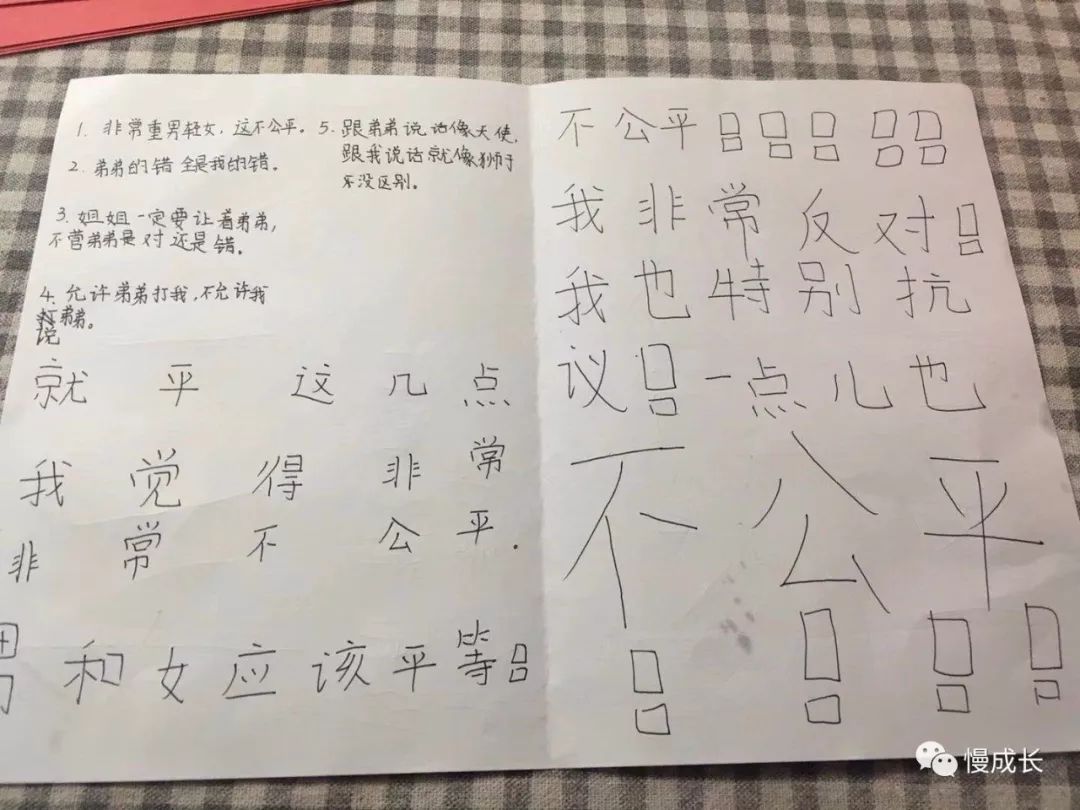 1. 非常重男轻女，这不公平。
2. 弟弟的错全是我的错。
3. 姐姐一定要让着弟弟，
不管弟弟是对还是错。
4. 允许弟弟打我，不允许我
打弟弟。
说
5. 跟弟弟说话像天使，
跟我说话就像狮子
乐没区别。
就平这几点
我觉得非常
非常不公平.
男和女应该平等！
不公平！！！！！
我非常反对！
我也特别抗
议！一点儿也
不公平
！！！！
慢成长